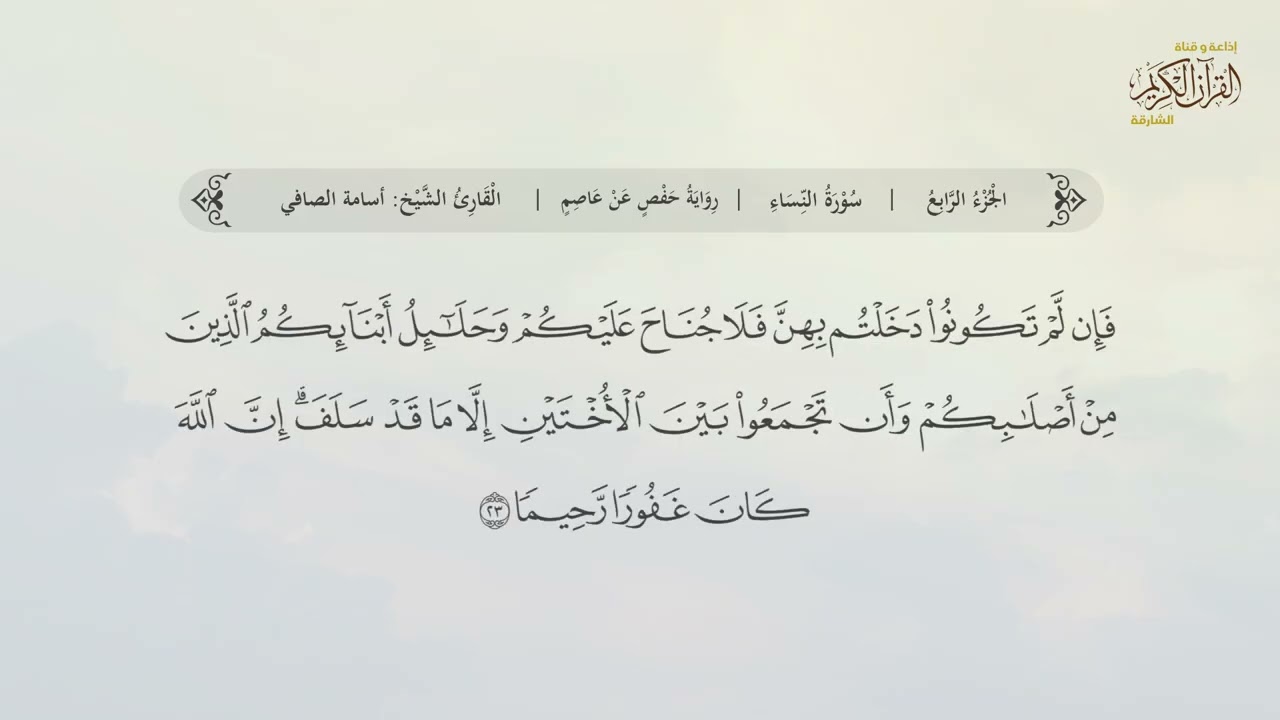 إذاعة و قناة
القرآن الكريم
الشارقة
الْجُزْءُ الرَّابِعُ | سُوْرَةُ النِّسَاءِ | رِوَايَةُ حَفْصٍ عَنْ عَاصِمٍ | الْقَارِئُ الشَّيْخ: أسامة الصافي
فَإِن لَّمْ تَكُونُوا۟ دَخَلْتُم بِهِنَّ فَلَا جُنَاحَ عَلَيْكُمْ وَحَلَـٰٓئِلُ أَبْنَآئِكُمُ ٱلَّذِينَ
مِنْ أَصْلَـٰبِكُمْ وَأَن تَجْمَعُوا۟ بَيْنَ ٱلْأُخْتَيْنِ إِلَّا مَا قَدْ سَلَفَ ۗ إِنَّ ٱللَّهَ
كَانَ غَفُورًا رَّحِيمًا ٢٣